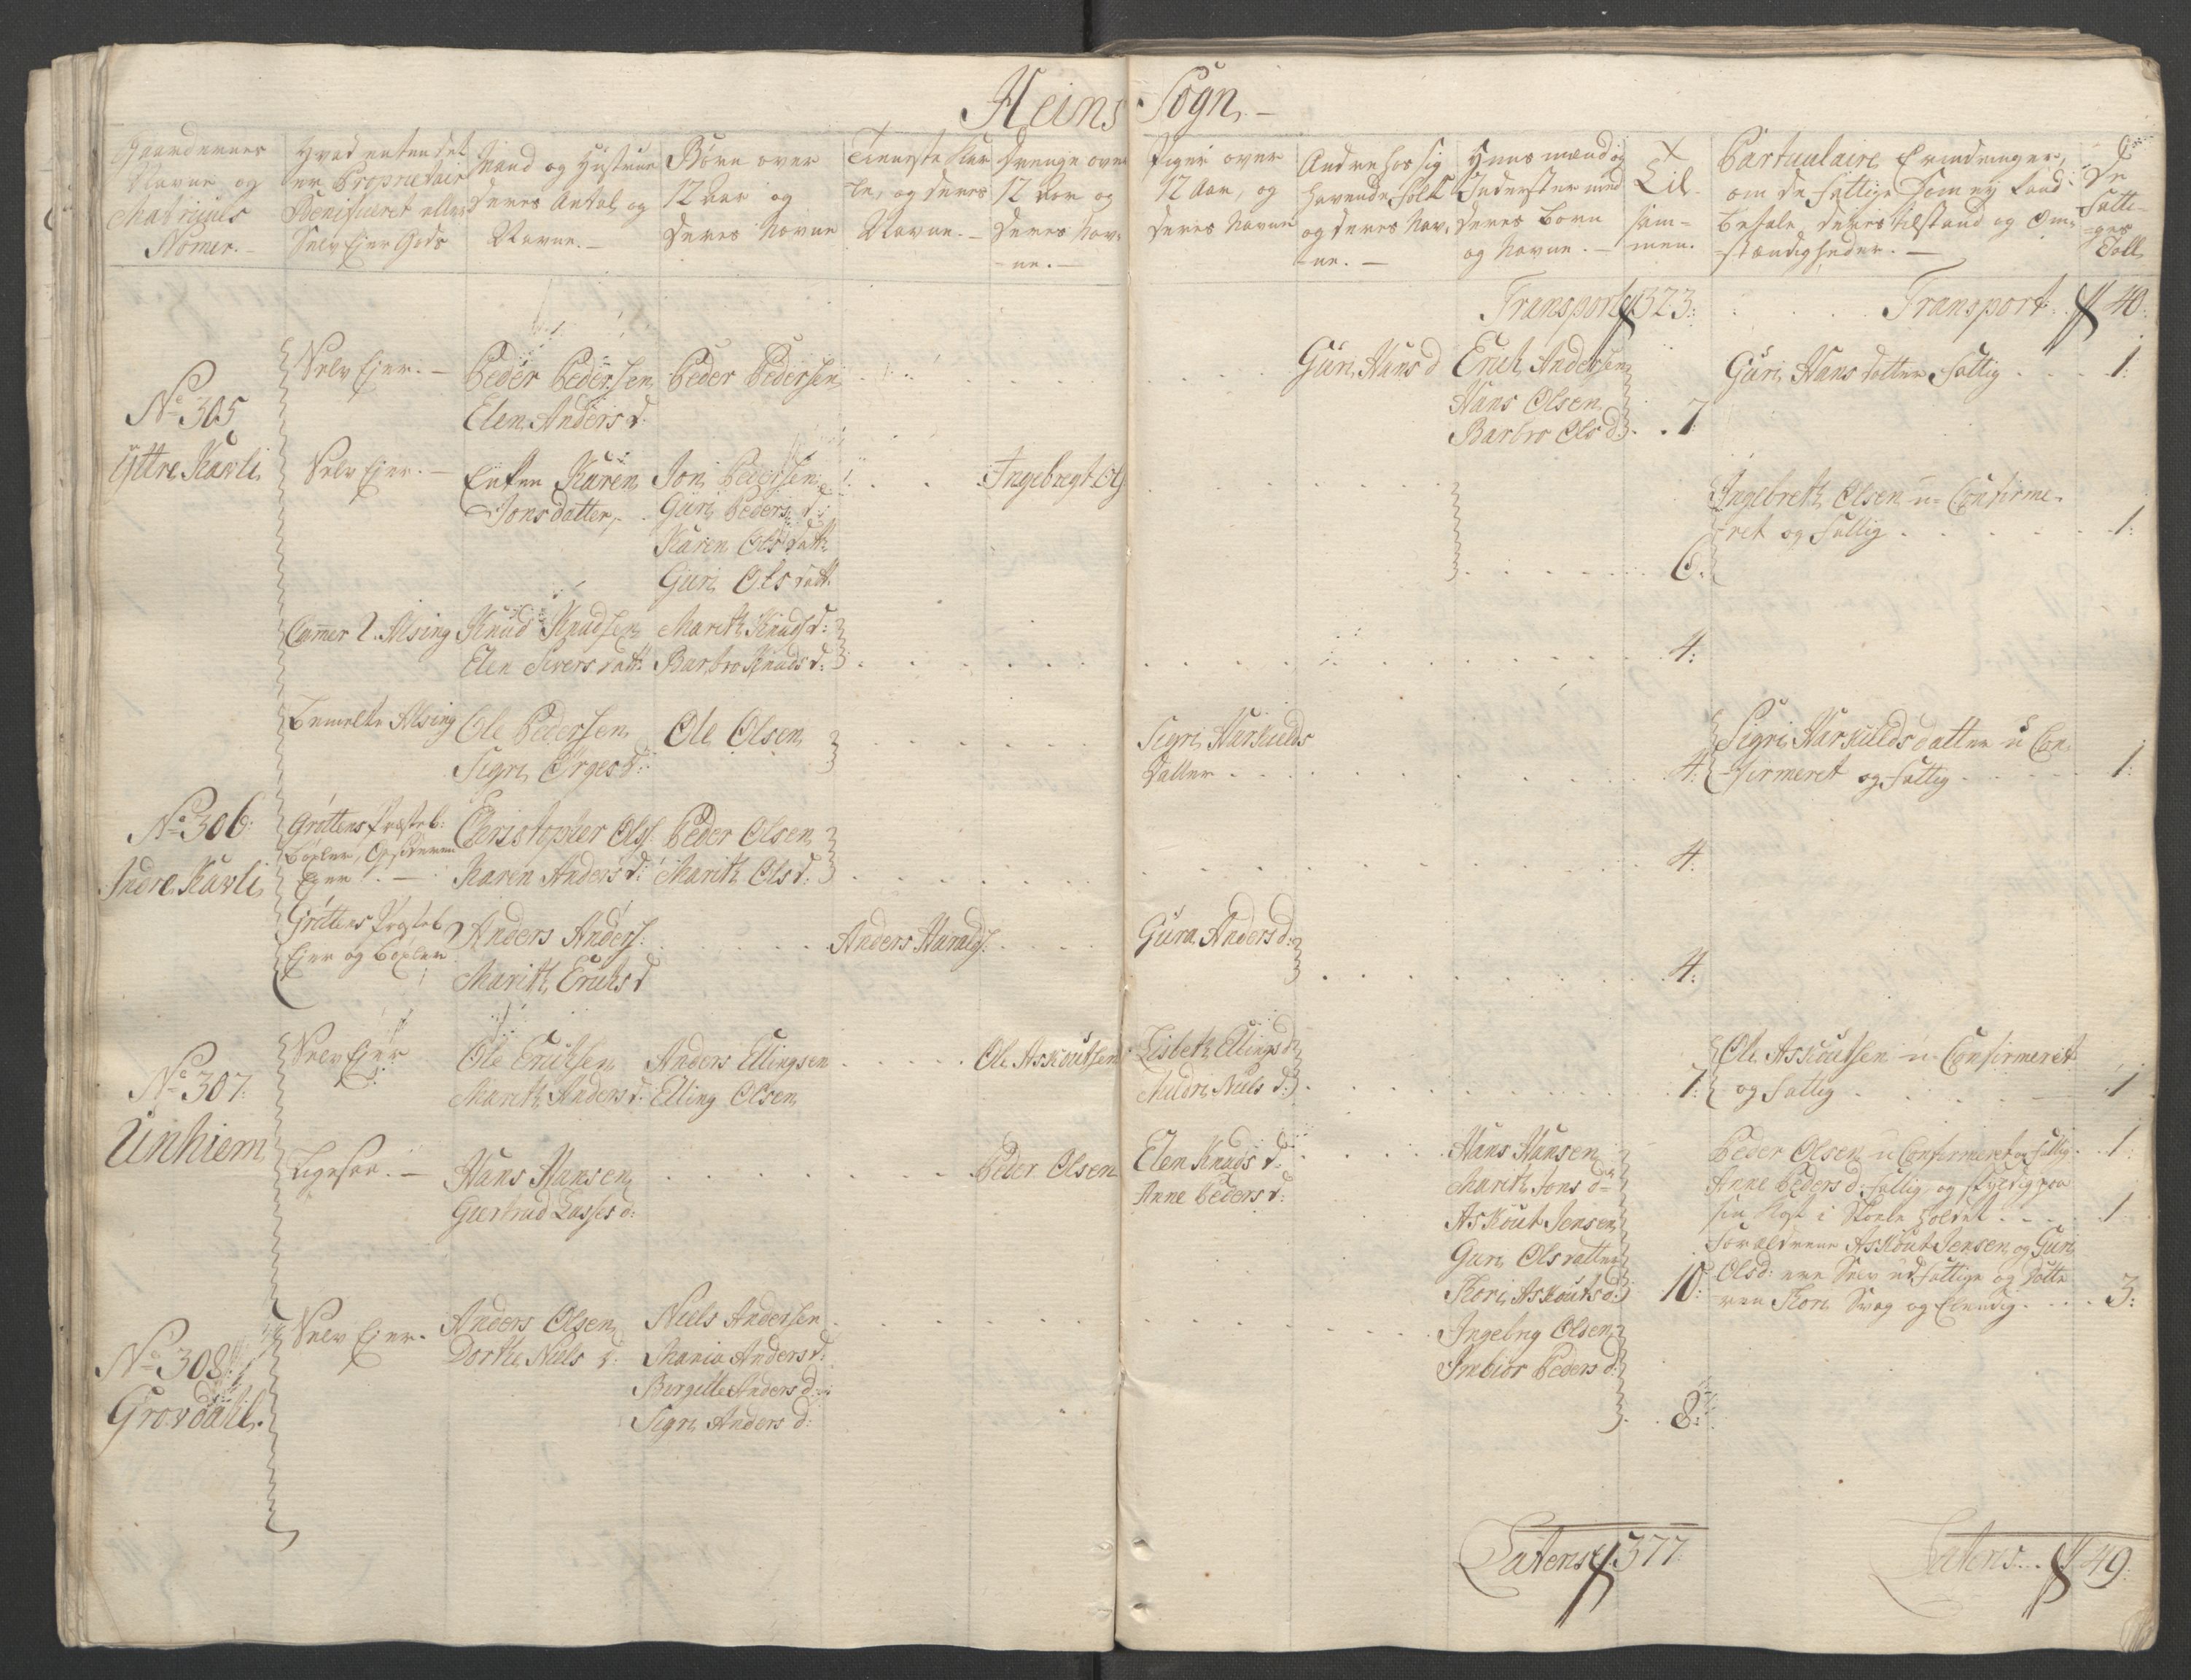 Heins Sogn.
Gaardernes Navne og Matriculs Nomer.
Hvad enten det er Proprietair Benificeret eller Selv Ejer Gods
Mand og Hustrue deres Antal og Navne.
Børn over 12 Aar og deres Navne
Tieneste Kar- le, og deres Navne.
Drenge over 12 Aar og deres Nav- ne.
Piger over 12 Aar, og deres Navne
Andre hos sig havende Folk og deres Nav- ne.
Huusmænd og Inderster med deres Børn og Navne.
Til- sam- men.
Particulaire Erindringer, om de fattige som ey kand betale deres tilstand og Om- stændigheder.
De Fatti- ges Tall
Transport 1323:
Transport 40:
No 305
Yttre Kavli
Selv Ejer.
Peder Pedersen
Elen Anders d:
Peder Pedersen
Guri Hans d
Erich Andersen
Hans Olsen
Barbro Ols d:
7
Guri Hans datter fattig
1:
Selv Ejer.
Enken Karen
Jonsdatter
Jon Pedersen
Guri Peders d:
Karen Ols datt:
Guri Ols datt:
Ingebregt Ols
6.
Ingebreth Olsen u- Confirme-
ret og fattig
1:
Cammer R. Alsing
Knud Knudsen
Elen Sivers datt:
Marith Knuds d:
Barbro Knuds d:
4:
bemelte Alsing
Ole Pedersen
Sigri Ørges d:
Ole Olsen
Sigri Harkields
datter
4:
Sigri Harkields datter u Con-
firmeret og fattig
1:
No 306:
Indre Kavli
Grøttens Præsteb:
bøxler, Opsidderen
Ejer.
Christopher Ols:
Karen Anders d:
Peder Olsen
Marith Ols d:
4:
Grøttens Præsteb
Ejer og bøxler
Anders Anders:
Marith Erichs d
Anders Haralds:
Gura Anders d:
4:
No 307:
Unhiem
Selv Ejer
Ole Erichsen
Marith Anders d:
Anders Ellingsen
Elling Olsen
Ole Askoutsen
Lisbeth Ellings d:
Mildri Niels d:
7:
Ole Askoutsen u- Confirmeret
og fattig
1
Ligesaa.
Hans Hansen
Giertrud Lasses d:
Peder Olsen
Elen Knuds d:
Anne Peders d:
Hans Hansen
Marith Jons d:
Askout Jensen
Guri Ols datter
Kori Askouts d:
10:
Peder Olsen u Confirmeret og fattig
1:
Anne Peders d: fattig og
1
Forældrene Askout Jensen og Guri
Ols d: ere Selv udfattige og Datte
ren Kori Svag og Elendig.
3:
No 308:
Grovdahl.
Selv Ejer.
Anders Olsen
Dorthe Niels d:
Niels Andersen
Maria Anders d:
Bergitte Anders d:
Sigri Anders d:
Ingebrig Olsen
Inebior Peders d:
8:
Latens 1377:
Latens 49: